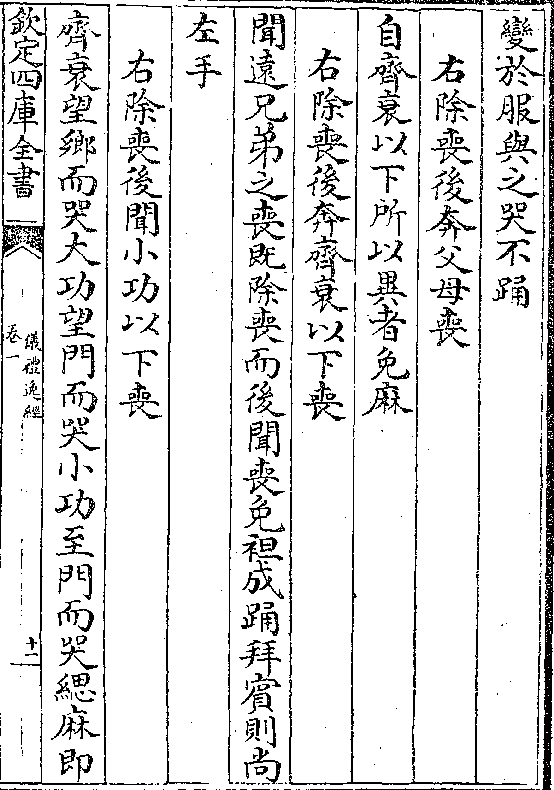 變於服與之哭不踊
右除喪後奔父母喪
自齊衰以下所以異者免麻
右除喪後奔齊衰以下喪
聞遠兄弟之喪既除喪而後聞喪免袒成踊拜賓則尚
左手
右除喪後聞小功以下喪
齊衰望鄉而哭大功望門而哭小功至門而哭緦麻即
欽定四庫全書
儀禮逸經
卷一
十一